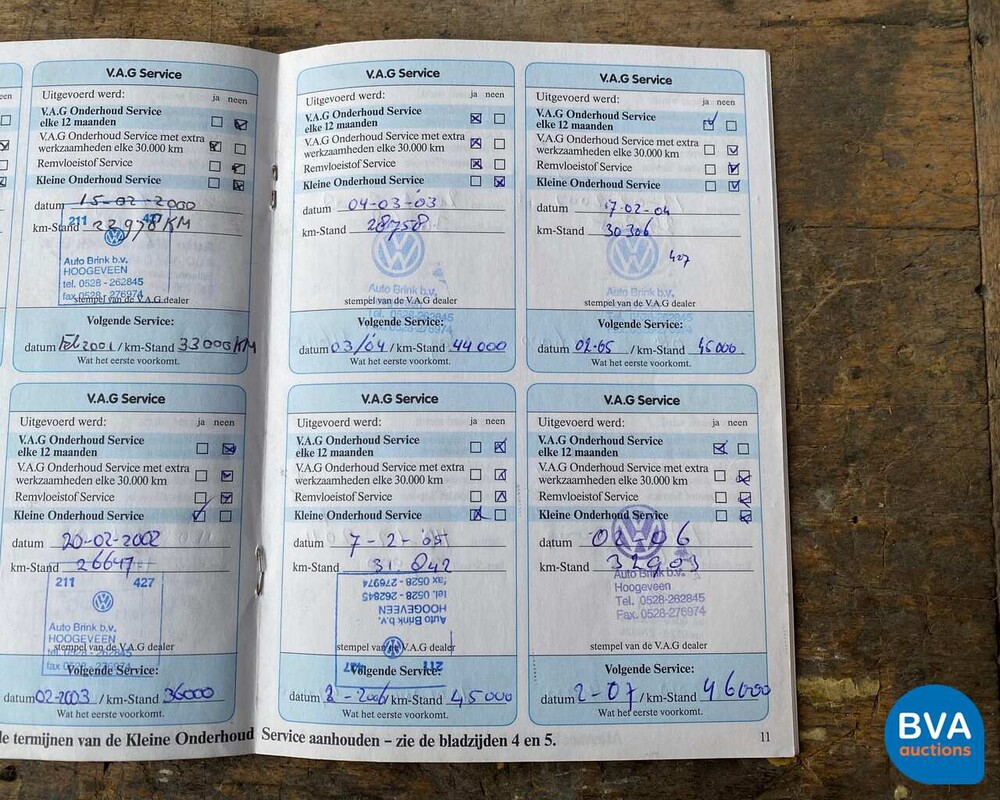 V.A.G Service
Uitgevoerd werd: ja neen
V.A.G Onderhoud Service
elke 12 maanden
V.A.G Onderhoud Service met extra
werkzaamheden elke 30.000 km
Remvloeistof Service
Kleine Onderhoud Service
datum 15-02-2000
km-Stand 22978 KM
211 427
Auto Brink b.v.
HOOGEVEEN
tel. 0528 - 262845
fax 0528 - 276974
stempel van de V.A.G dealer
Volgende Service:
datum Feb 2001 / km-Stand 33000 KM
Wat het eerste voorkomt.
V.A.G Service
Uitgevoerd werd: ja neen
V.A.G Onderhoud Service
elke 12 maanden
V.A.G Onderhoud Service met extra
werkzaamheden elke 30.000 km
Remvloeistof Service
Kleine Onderhoud Service
datum 04-03-03
km-Stand 28758
Auto Brink b.v.
stempel van de V.A.G dealer
Volgende Service:
datum 03/04 / km-Stand 44000
Wat het eerste voorkomt.
V.A.G Service
Uitgevoerd werd: ja neen
V.A.G Onderhoud Service
elke 12 maanden
V.A.G Onderhoud Service met extra
werkzaamheden elke 30.000 km
Remvloeistof Service
Kleine Onderhoud Service
datum 17-02-04
km-Stand 30306
427
Auto Brink b.v.
stempel van de V.A.G dealer
Volgende Service:
datum 02-05 / km-Stand 45000
Wat het eerste voorkomt.
V.A.G Service
Uitgevoerd werd: ja neen
V.A.G Onderhoud Service
elke 12 maanden
V.A.G Onderhoud Service met extra
werkzaamheden elke 30.000 km
Remvloeistof Service
Kleine Onderhoud Service
datum 20-02-2002
km-Stand 26647
211 427
Auto Brink b.v.
HOOGEVEEN
stempel van de V.A.G dealer
tel. 0528 - 262845
fax 0528 - 276974
Volgende Service:
datum 02-2003 / km-Stand 36000
Wat het eerste voorkomt.
V.A.G Service
Uitgevoerd werd: ja neen
V.A.G Onderhoud Service
elke 12 maanden
V.A.G Onderhoud Service met extra
werkzaamheden elke 30.000 km
Remvloeistof Service
Kleine Onderhoud Service
datum 7-2-
km-Stand 31.042
fax 0528 - 276974
tel. 0528 - 262845
HOOGEVEEN
Auto Brink b.v.
stempel van de V.A.G dealer
211 427
Volgende Service:
datum 2-2006 / km-Stand 45000
Wat het eerste voorkomt.
V.A.G Service
Uitgevoerd werd: ja neen
V.A.G Onderhoud Service
elke 12 maanden
V.A.G Onderhoud Service met extra
werkzaamheden elke 30.000 km
Remvloeistof Service
Kleine Onderhoud Service
datum 02-06
km-Stand 32903
Auto Brink b.v.
Hoogeveen
Tel. 0528-262845
Fax. 0528-276974
stempel van de V.A.G dealer
Volgende Service:
datum 2-07 / km-Stand 46000
Wat het eerste voorkomt.
termijnen van de Kleine Onderhoud Service aanhouden – zie de bladzijden 4 en 5.
11
BVA
auctions